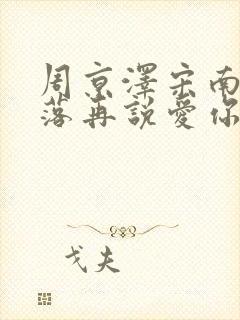 周京澤宋南
落再說愛你
戈夫